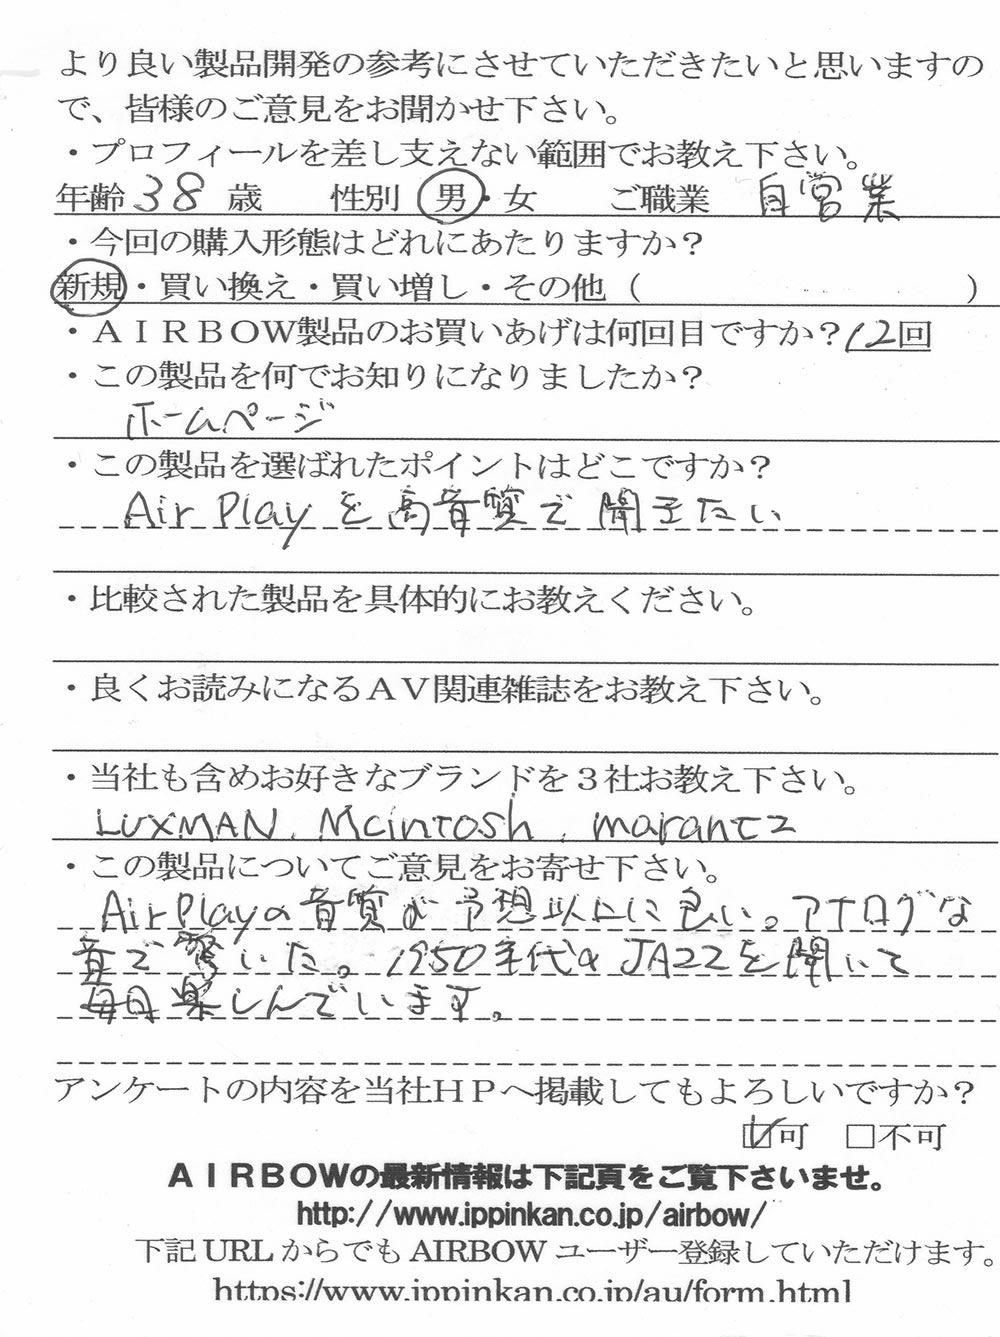 より良い製品開発の参考にさせていただきたいと思いますの
で、皆様のご意見をお聞かせ下さい。
・プロフィールを差し支えない範囲でお教え下さい。
年齢 38 歳 性別 男・女 ご職業 自営業
・今回の購入形態はどれにあたりますか？
新規・買い換え・買い増し・その他（ ）
・ＡＩＲＢＯＷ製品のお買いあげは何回目ですか？12回
・この製品を何でお知りになりましたか？
ホームページ
・この製品を選ばれたポイントはどこですか？
Air Playを高音質で聞きたい
・比較された製品を具体的にお教えください。
・良くお読みになるＡＶ関連雑誌をお教え下さい。
・当社も含めお好きなブランドを３社お教え下さい。
LUXMAN、Mcintosh、marantz
・この製品についてご意見をお寄せ下さい。
Air Playの音質が予想以上に良い。アナログな
音で驚いた。1950年代のJAZZを聞いて
毎日楽しんでいます。
アンケートの内容を当社ＨＰへ掲載してもよろしいですか？
☑可 □不可
ＡＩＲＢＯＷの最新情報は下記頁をご覧下さいませ。
http://www.ippinkan.co.jp/airbow/
下記 URL からでも AIRBOW ユーザー登録していただけます。
https://www.ippinkan.co.jp/au/form.html